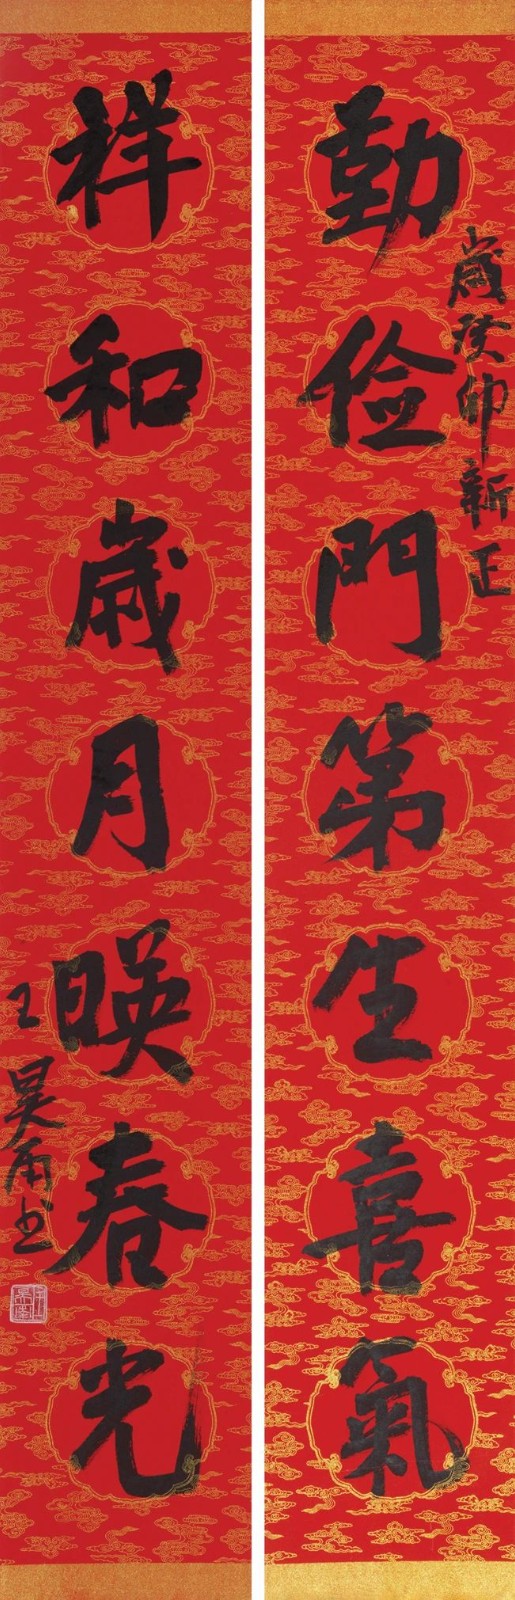 勤儉門第生喜氣
歲癸卯新正
祥和歲月暎春光
昊甫书